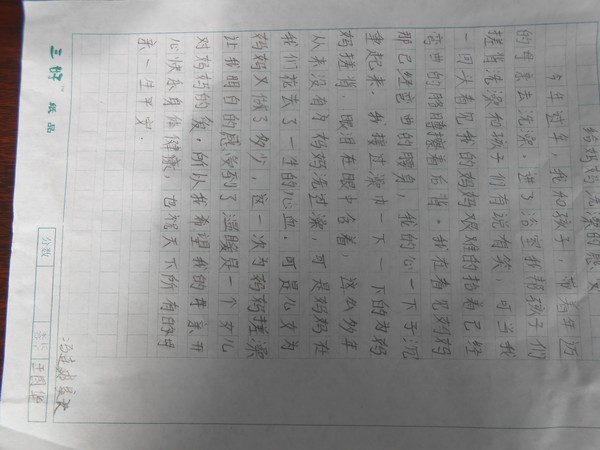 妈妈洗澡的感受
今年过年,我和孩子,带着年迈
的母亲去洗澡。进了浴室我帮孩子们
搓背洗澡和孩子们有说有笑,可当我
一回头看见我的妈妈艰难的抬着已经
弯曲的胳膊搓着后背。我在看见妈妈
那已经弯曲的腰身,我的心一下子沉
重起来,我接过澡巾一下一下的为妈
妈搓背,眼泪在眼中含着,这么多年
从来没有为妈妈洗过澡,可是妈妈为
我们付出了一生的心血。可是儿女为
妈妈又做了多少。这一次为妈妈搓澡
让我明白的感受到了温暖及一个女儿
对妈妈的爱,所以我希望我的母亲开
心快乐身体健康,也祝天下所有的母
亲一生平安.
三好 纸品
分数